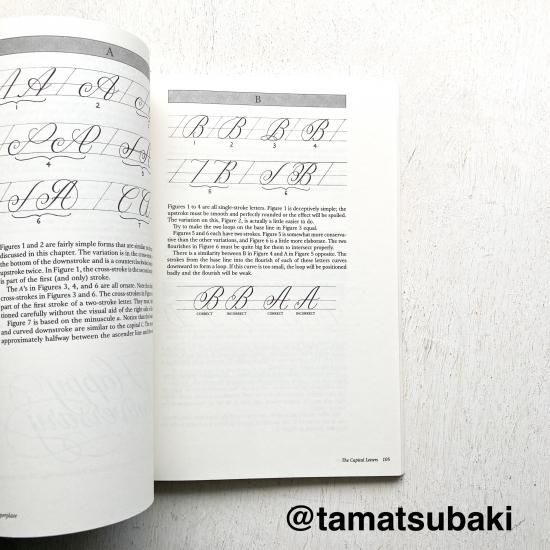 A
1
2
3
4
5
6
7
Figures 1 and 2 are fairly simple forms that are similar to
discussed in this chapter. The variation is in the
the bottom of the downstroke and is a
upstroke twice. In Figure 1, the cross-stroke is the second
is part of the first (and only) stroke.
The A's in Figures 3, 4, and 6 are all ornate. Note the
cross-strokes in Figures 3 and 6. The cross-stroke in Figure
part of the first stroke of a two-stroke letter. They must
tioned carefully without the visual aid of the right side
Figure 7 is based on the minuscule a. Notice that the
and curved downstroke are similar to the capital C. The
approximately halfway between the ascender line and
B
B B B B
1 2 3 4
B B
5 6
Figures 1 to 4 are all single-stroke letters. Figure 1 is deceptively simple; the
upstroke must be smooth and perfectly rounded or the effect will be spoiled.
The variation on this, Figure 2, is actually a little easier to do.
Try to make the two loops on the base line in Figure 3 equal.
Figures 5 and 6 each have two strokes. Figure 5 is somewhat more conserva-
tive than the other variations, and Figure 6 is a little more elaborate. The two
flourishes in Figure 6 must be quite big for them to intersect properly.
There is a similarity between B in Figure 4 and A in Figure 5 opposite. The
strokes from the base line into the flourish of each of these letters curves
downward to form a loop. If this curve is too small, the loop will be positioned
badly and the flourish will be weak.
B B A A
CORRECT INCORRECT CORRECT INCORRECT
The Capital Letters 105
@tamatsubaki